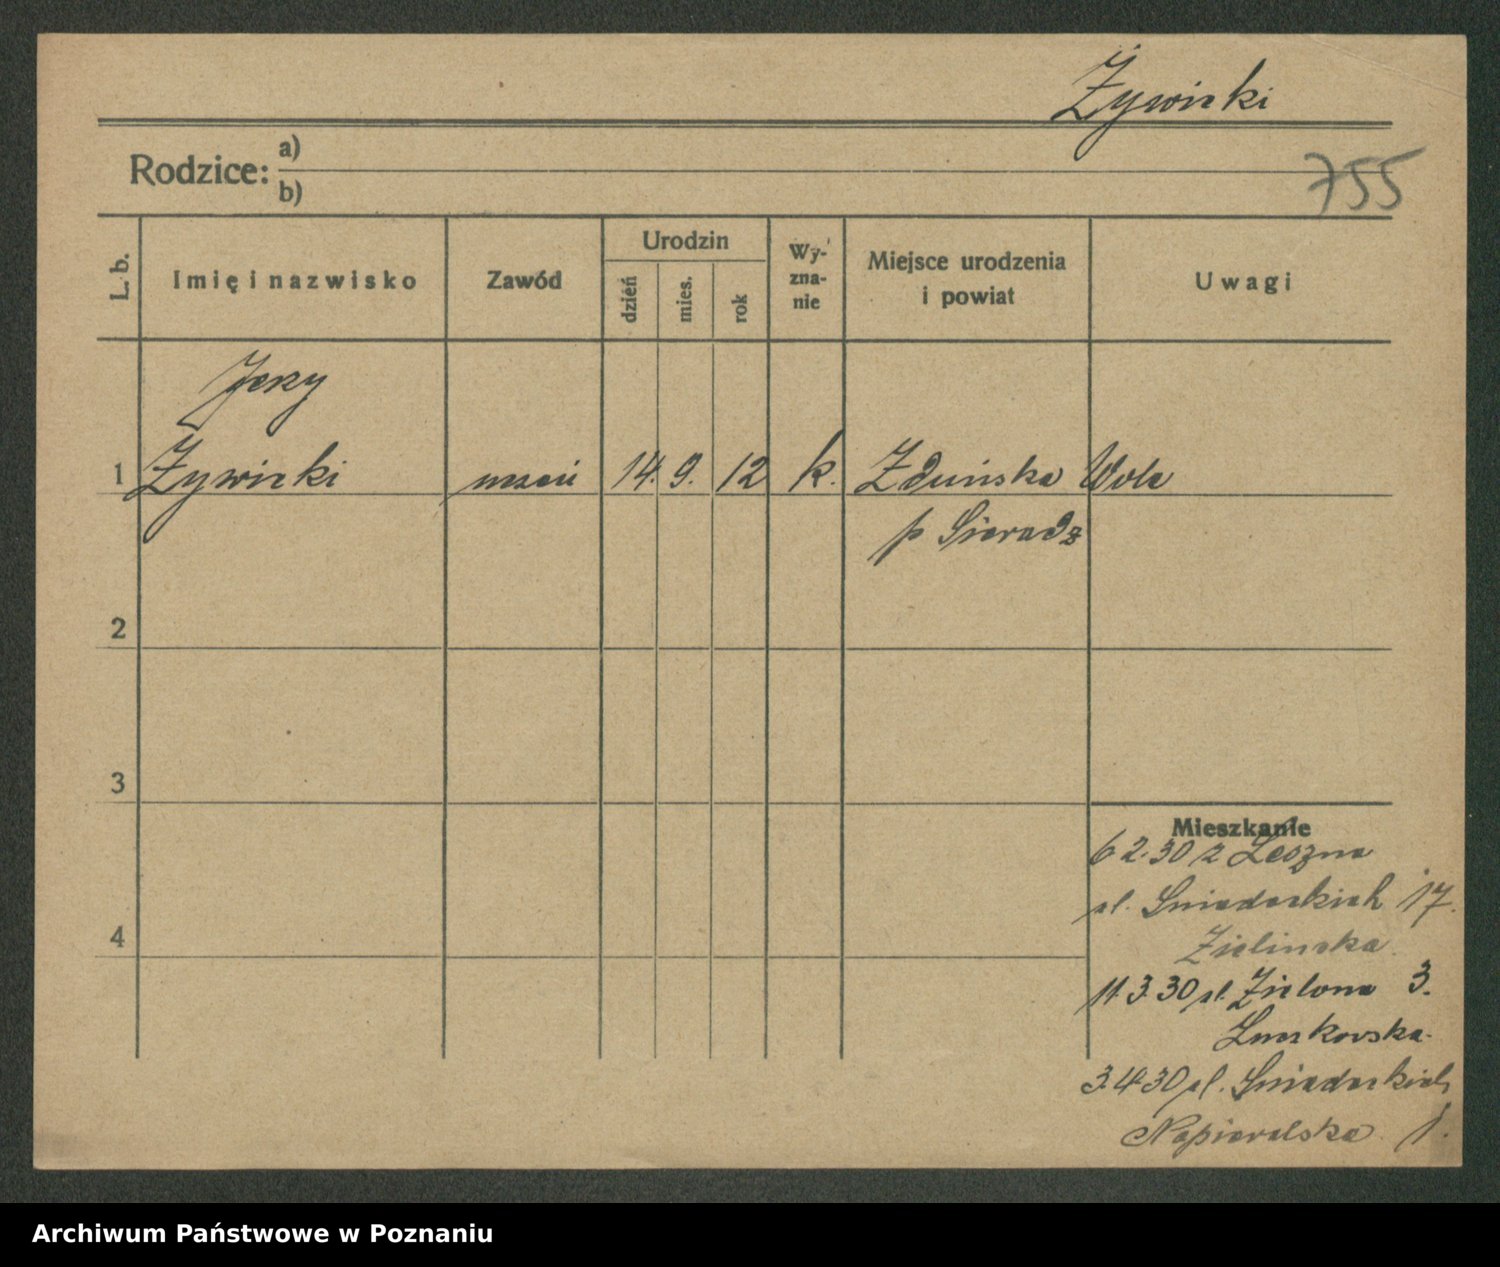 Żywicki
Rodzice: a)
b)
755
L. b.
Imię i nazwisko
Zawód
Urodzin
dzień
mies.
rok
Wy-
zna-
nie
Miejsce urodzenia
i powiat
Uwagi
Jerzy
1 Żywicki uczeń 14. 9. 12 k. Zduńska Wola
p Sieradz
2
3
4
Mieszkanie
6 2.30 z Leszna
pl. Sniadeckich 17.
Zielinska
11.3.30 pl. Zielona 3.
3.4.30 pl. Sniadeckich
Napieralska 1.
Archiwum Państwowe w Poznaniu